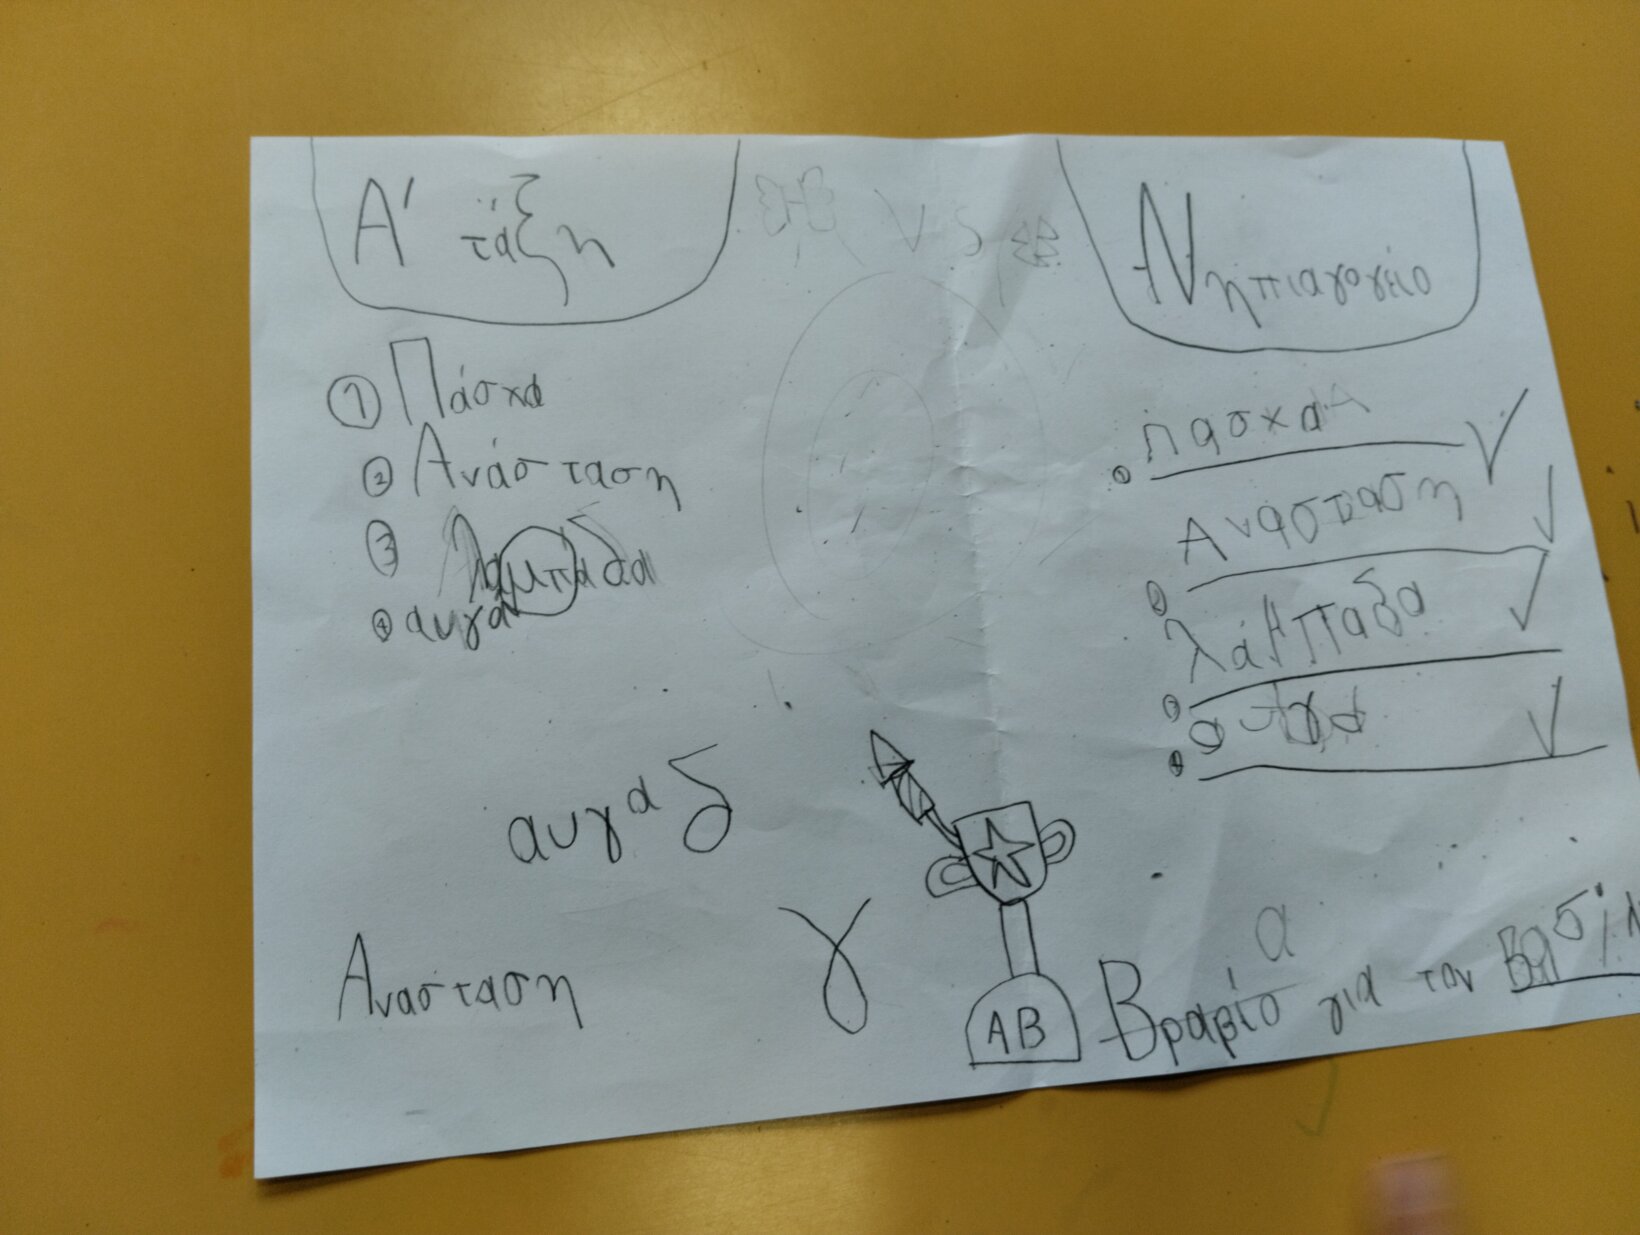 Α' τάξη
VS
Νηπιαγογείο
① Πάσχα
② Ανάσταση
③ λαμπάδα
④ αυγά
① πασχα Α
② Αναστααση
③ λάμπαδα
④ αυγα
αυγα δ
Ανασταση
γ
α
ΑΒ
Βραβίο για τον